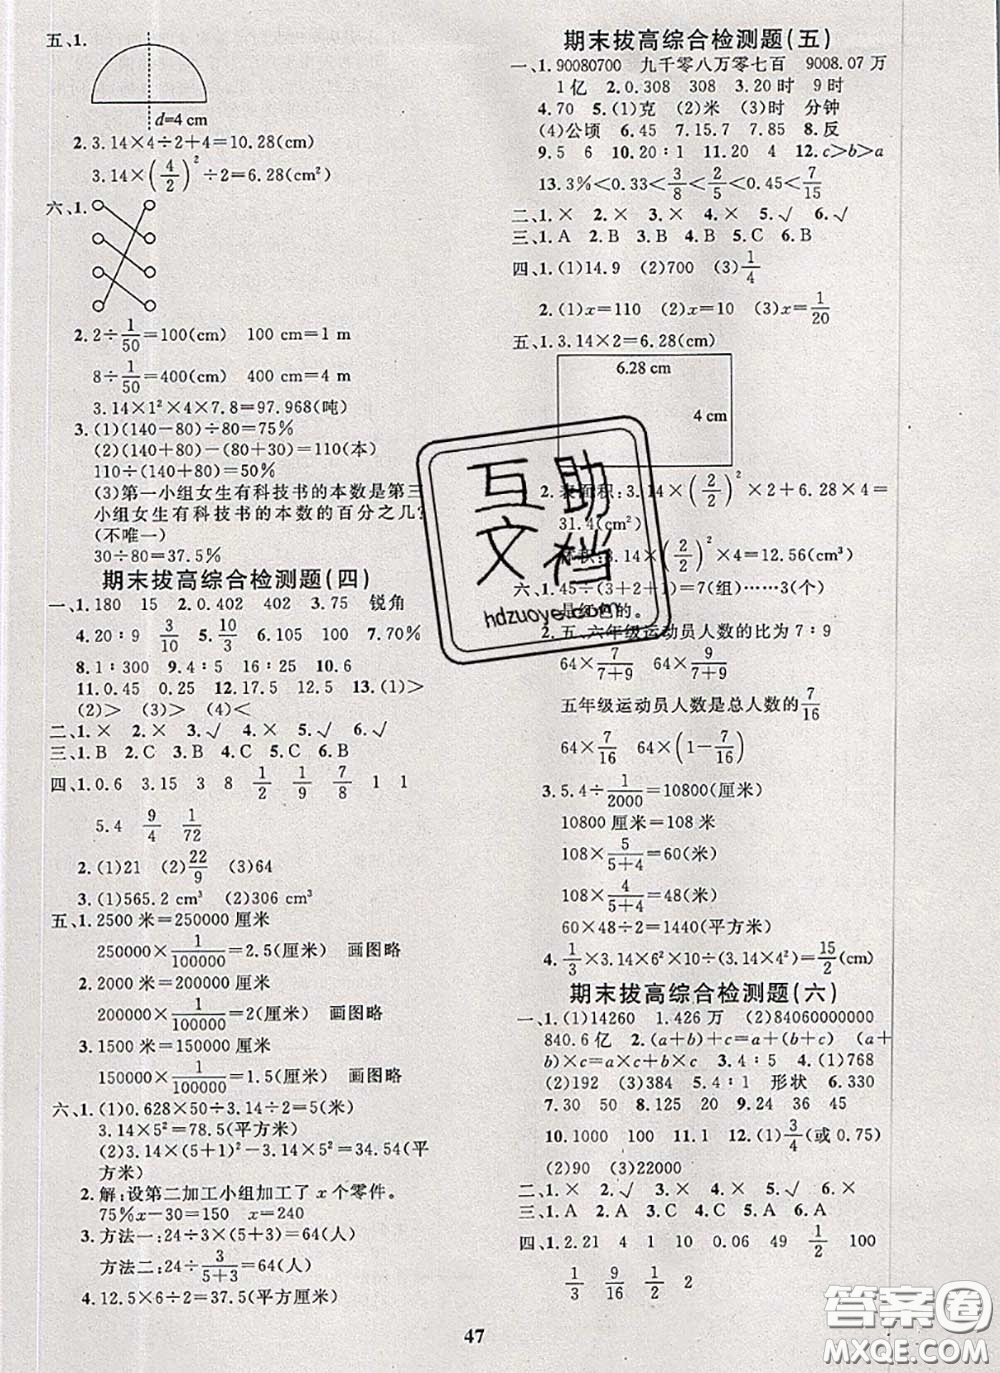 五、1.
d=4 cm
2. 3.14×4÷2+4=10.28(cm)
3.14×(4/2)²÷2=6.28(cm²)
六、1.
2. 2÷1/50=100(cm) 100 cm=1 m
8÷1/50=400(cm) 400 cm=4 m
3.14×1²×4×7.8=97.968(吨)
3. (1)(140-80)÷80=75%
(2)(140+80)÷2=110(本)
110÷(140+80)=50%
(3)第一小组女生有科技书的本数是第三
小组女生有科技书的本数的百分之几?
(不唯一)
30÷80=37.5%
期末拔高综合检测题(四)
一、1. 180 15 2. 0.402 402 3. 75 锐角
4. 20∶9 3/10 5. 10/3 6. 105 100 7. 70%
8. 1∶300 9. 4∶5 16∶25 10. 6
11. 0.45 0.25 12. 17.5 12.5 13. (1)>
(2)> (3)> (4)<
二、1. × 2. × 3. √ 4. × 5. × 6. √
三、1. B 2. C 3. B 4. C 5. C 6. B
四、1. 0.6 3.15 3 8 1/2 1/9 7/8 1 1
5.4 9/4 1/72
2. (1)21 (2)22/9 (3)64
3. (1)565.2 cm³ (2)306 cm³
五、1. 2500 米=250000 厘米
250000×1/100000=2.5(厘米) 画图略
2. 2000 米=200000 厘米
200000×1/100000=2(厘米) 画图略
3. 1500 米=150000 厘米
150000×1/100000=1.5(厘米) 画图略
六、1. (1)0.628×50÷3.14÷2=5(米)
3.14×5²=78.5(平方米)
(2)3.14×(5+1)²-3.14×5²=34.54(平
方米)
2. 解:设第二加工小组加工了 x 个零件。
75%x-30=150 x=240
3. 方法一:24÷3×(5+3)=64(人)
方法二:24÷3/(5+3)=64(人)
4. 12.5×6÷2=37.5(平方厘米)
期末拔高综合检测题(五)
一、1. 90080700 九千零八万零七百 9008.07 万
1 亿 2. 0.308 308 3. 20 时 9 时
4. 70 5. (1)克 (2)米 (3)时 分钟
(4)公顷 6. 45 7. 7.15 7.85 8. 反
9. 5 6 10. 20∶1 11. 20 4 12. c>b>a
13. 3%<0.33<3/8<2/5<0.45<7/15
二、1. × 2. × 3. × 4. × 5. √ 6. √
三、1. A 2. B 3. B 4. B 5. C 6. B
四、1. (1)14.9 (2)700 (3)1/4
2. (1)x=110 (2)x=10 (3)x=1/20
五、1. 3.14×2=6.28(cm)
6.28 cm
4 cm
2. 表面积:3.14×(2/2)²×2+6.28×4=
31.4(cm²)
体积:3.14×(2/2)²×4=12.56(cm³)
六、1. 45÷(3+2+1)=7(组)……3(个)
是红色的。
2. 五、六年级运动员人数的比为 7∶9
64×7/(7+9) 64×9/(7+9)
五年级运动员人数是总人数的7/16
64×7/16 64×(1-7/16)
3. 5.4÷1/2000=10800(厘米)
10800 厘米=108 米
108×5/(5+4)=60(米)
108×4/(5+4)=48(米)
60×48÷2=1440(平方米)
4. 1/3×3.14×6²×10÷(3.14×4²)=15/2(cm)
期末拔高综合检测题(六)
一、1. (1)14260 1.426 万 (2)84060000000
840.6 亿 2. (a+b)+c=a+(b+c) (a+
b)×c=a×c+b×c 3. 4∶5 4. (1)768
(2)192 (3)384 5. 4∶1 形状 6. 330
7. 30 50 8. 125 20 9. 24 36 45
10. 1000 100 11. 1 12. (1)3/4(或 0.75)
(2)90 (3)22000
二、1. × 2. √ 3. √ 4. × 5. × 6. ×
三、1. C 2. A 3. B 4. C 5. A 6. A
四、1. 2.21 4 1 10 0.06 49 1/2 100
1/3 9/16 1/2 2
47
互助
文档
hdzuoye.com
答案圈
MXQE.COM